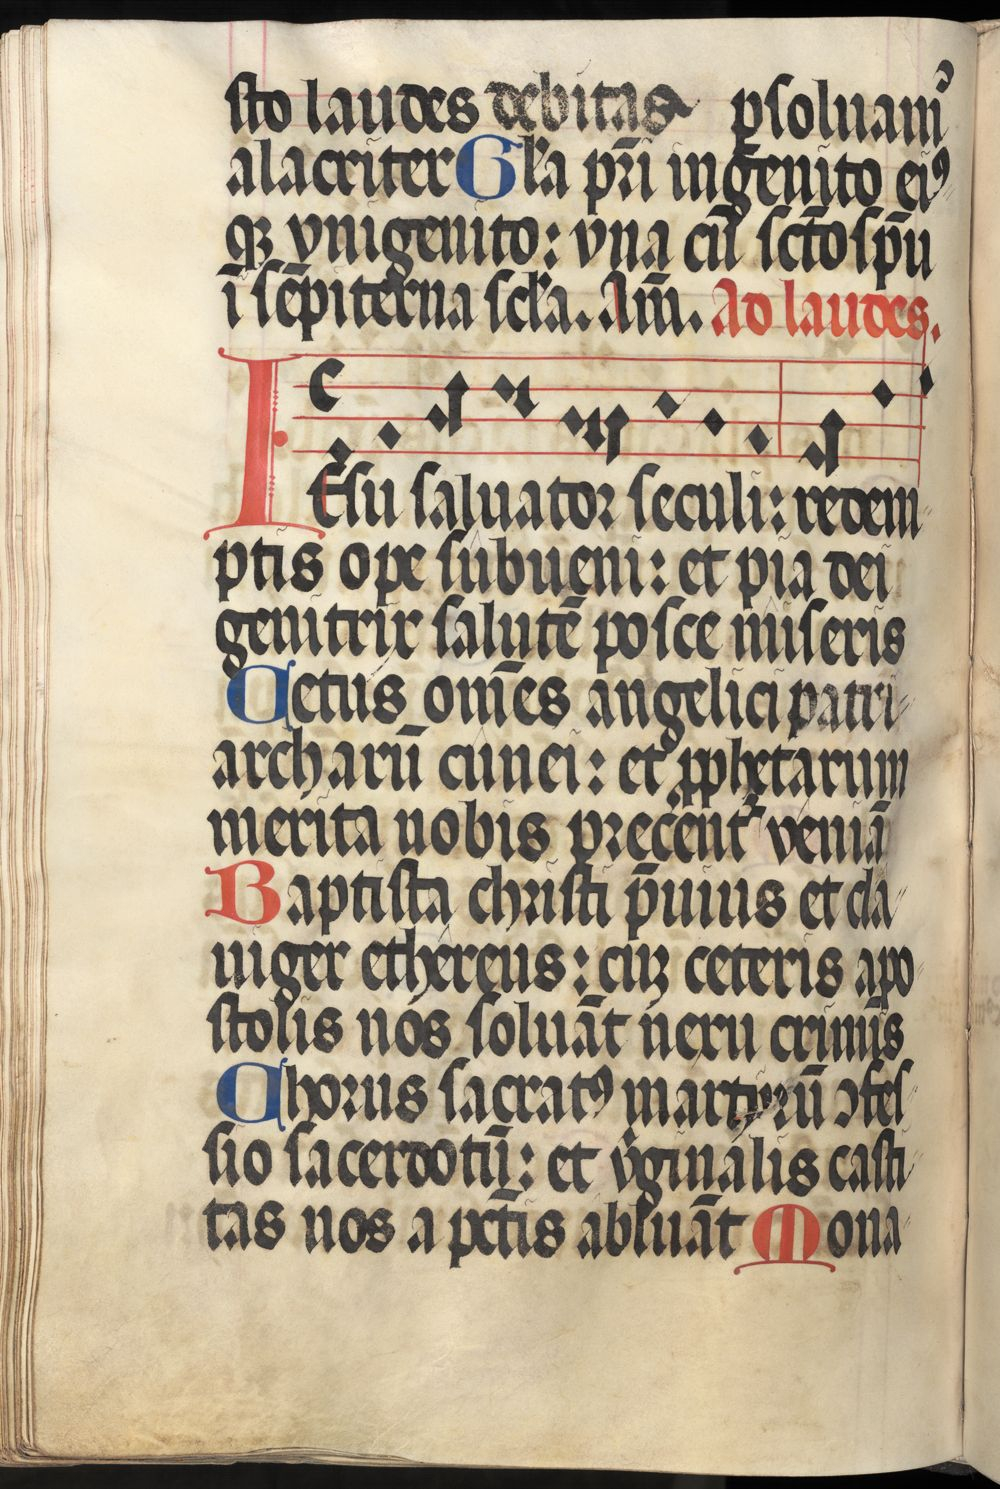 sto laudes debitas psoluamꝰ
alacriter Gl̄a pr̄i ingenito eiꝰ
qꝫ vnigenito: vna cū sc̄to sp̄u
ī sēpiterna scl̄a. Am̄. Ad laudes.
IEsu saluator seculi: redem
ptis ope subueni: et pia dei
genitrix salutē posce miseris
Cetus om̄es angelici patri
archarū cunei: et ꝓphetarum
merita nobis precent᷑ veniā
Baptista christi p̄uius et cla
uiger ethereus: cuꝫ ceteris apo
stolis nos soluāt nexu crimīs
Chorus sacratꝰ martyrū ↄfes
sio sacerdotū: et v̓ginalis casti
tas nos a pct̄is abluāt Mona